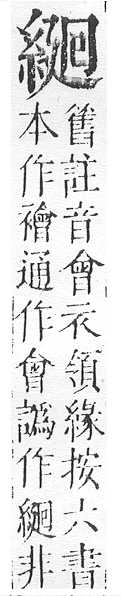 絗
舊註音會衣領緣按六書
本作襘通作會譌作絗非